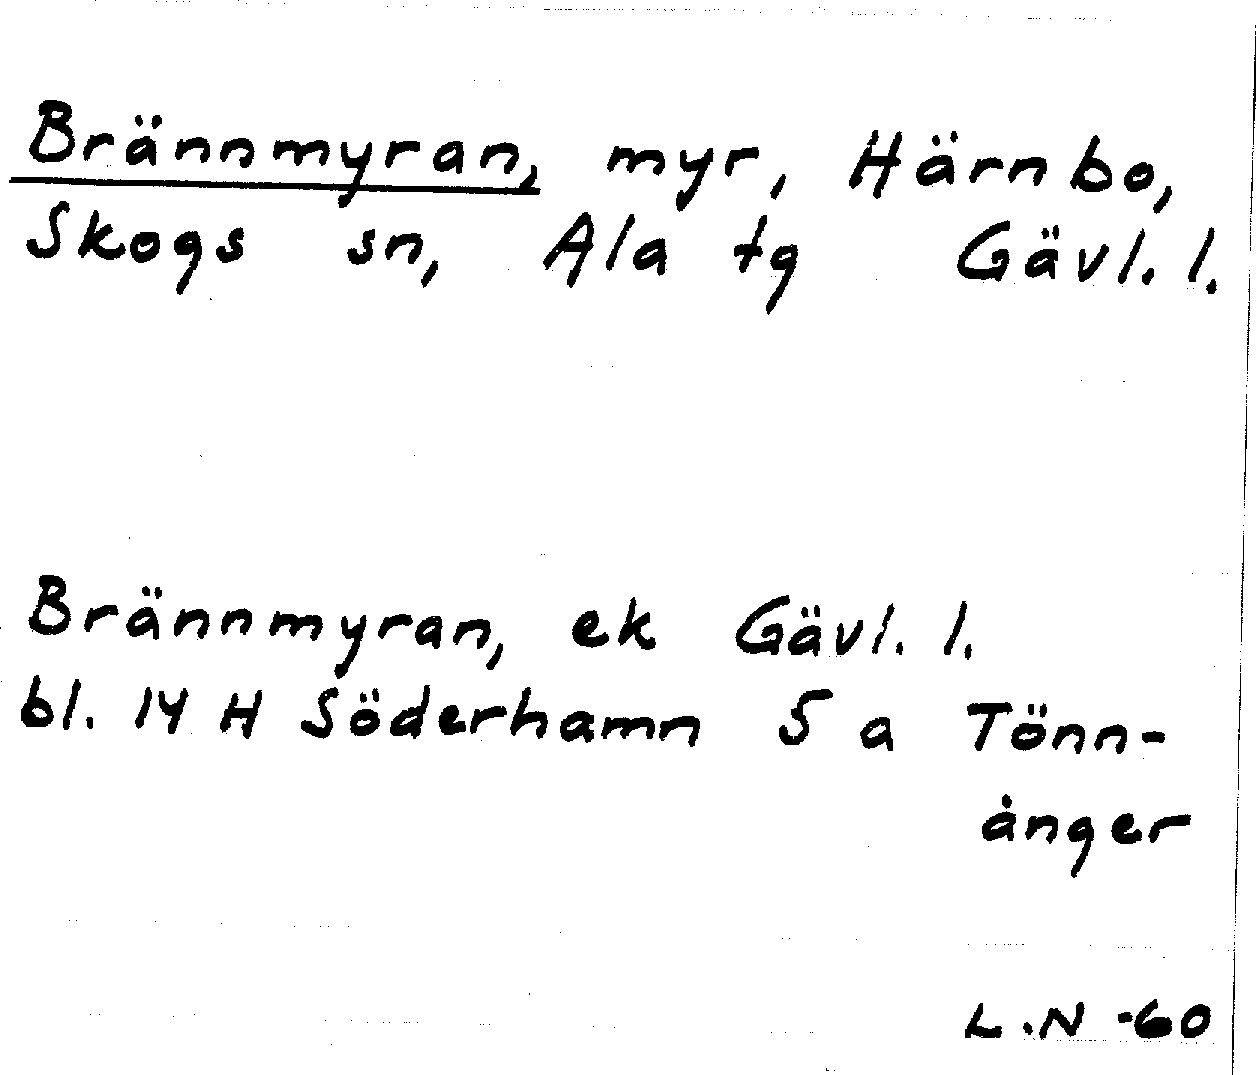 Brännmyran, myr, Härnbo,
Skogs sn, Ala tg Gävl. l.
Brännmyran, ek Gävl. l.
bl. 14 H Söderhamn 5 a Tönn-
ånger
L.N -60